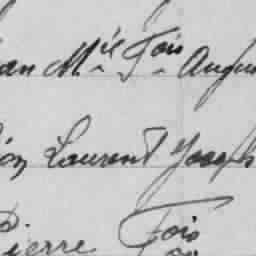 an Mie Fois Augu
on Laurent Joseph
Pierre Fois